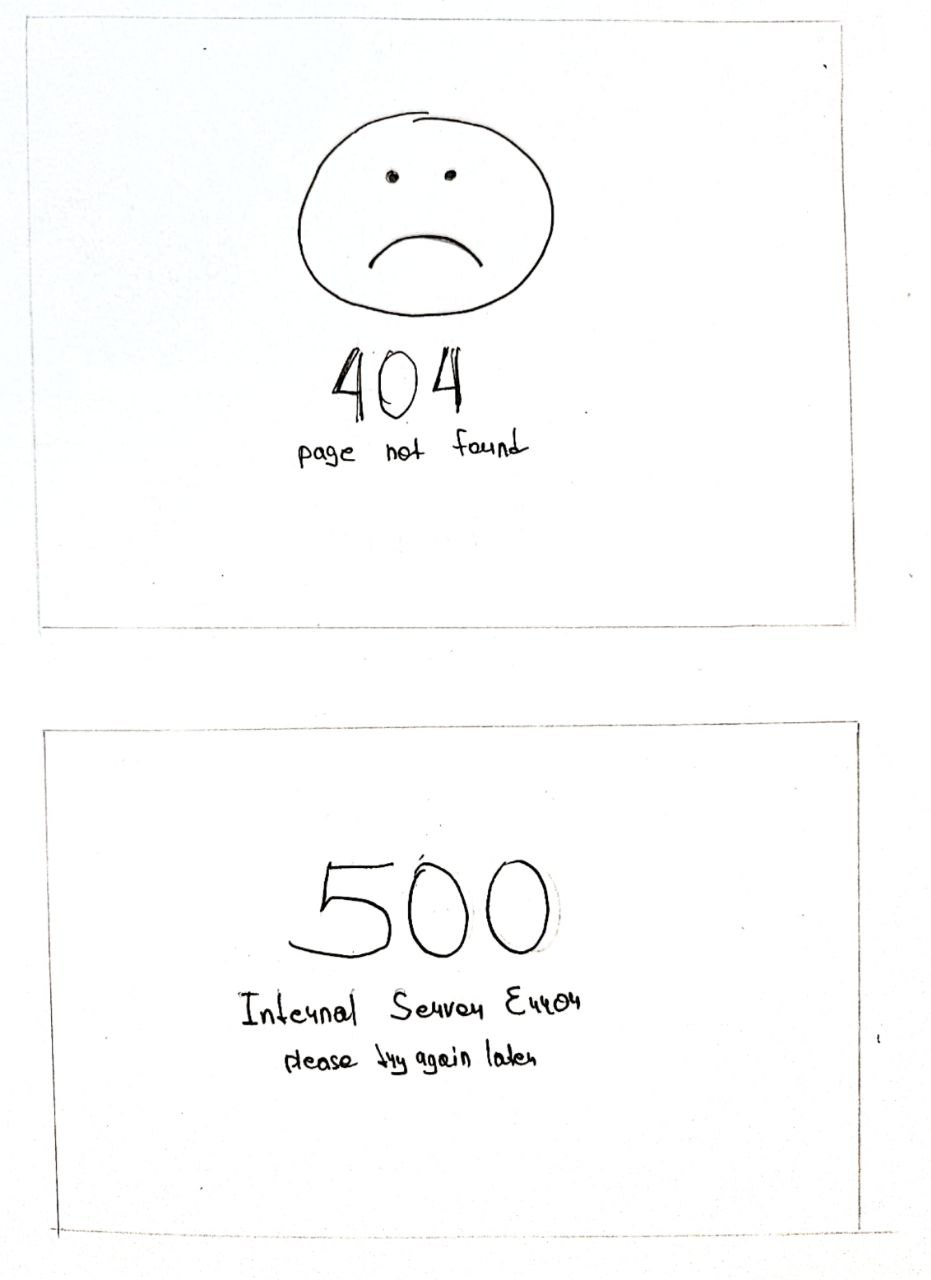 404
page not found
500
Internal Server Error
please try again later